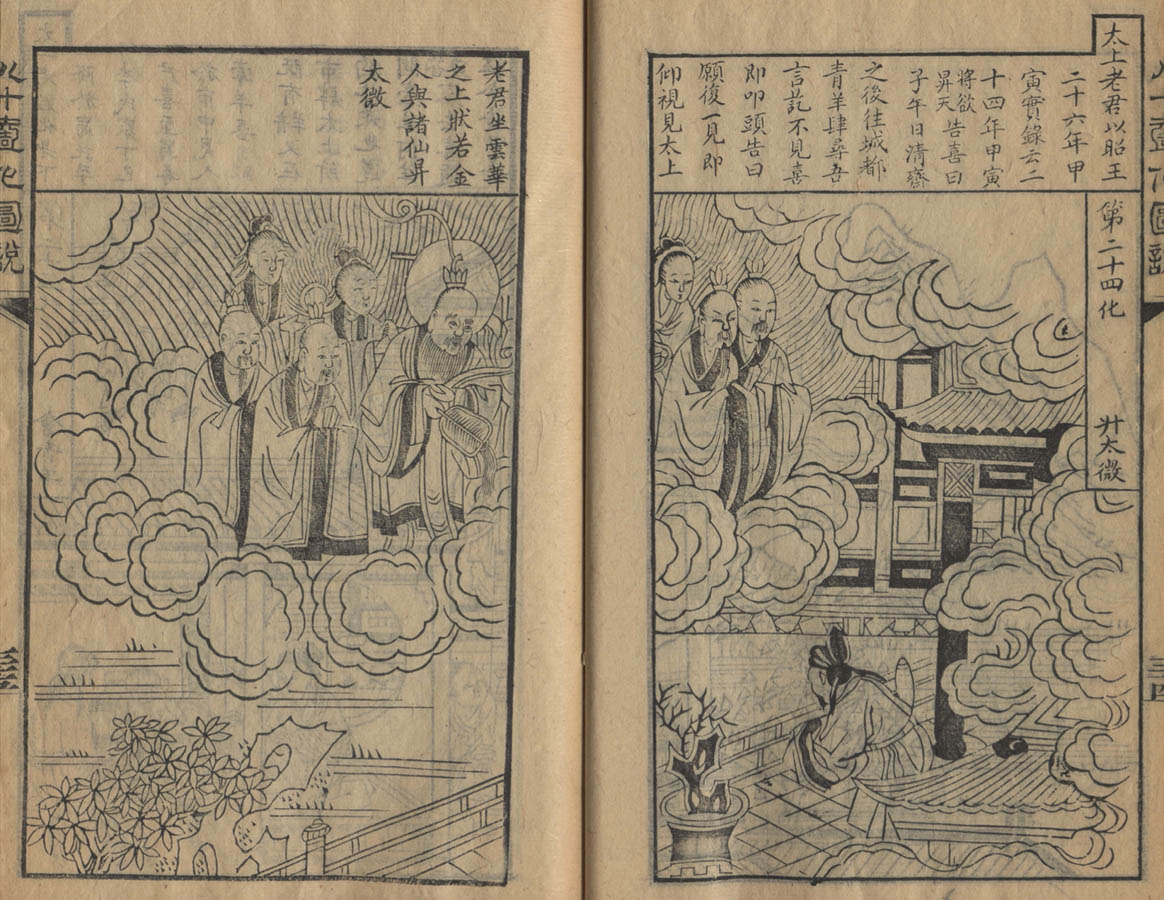 太上老君以昭王
二十六年甲
寅實錄云二
十四年甲寅
將欲昇天告喜曰
子午日清齋
之後往城都
青羊肆尋吾
言訖不見喜
即叩頭告曰
願復一見即
仰視見太上
第二十四化
廾太微
老君坐雲華
之上狀若金
人與諸仙昇
太微
八十壹化圖說